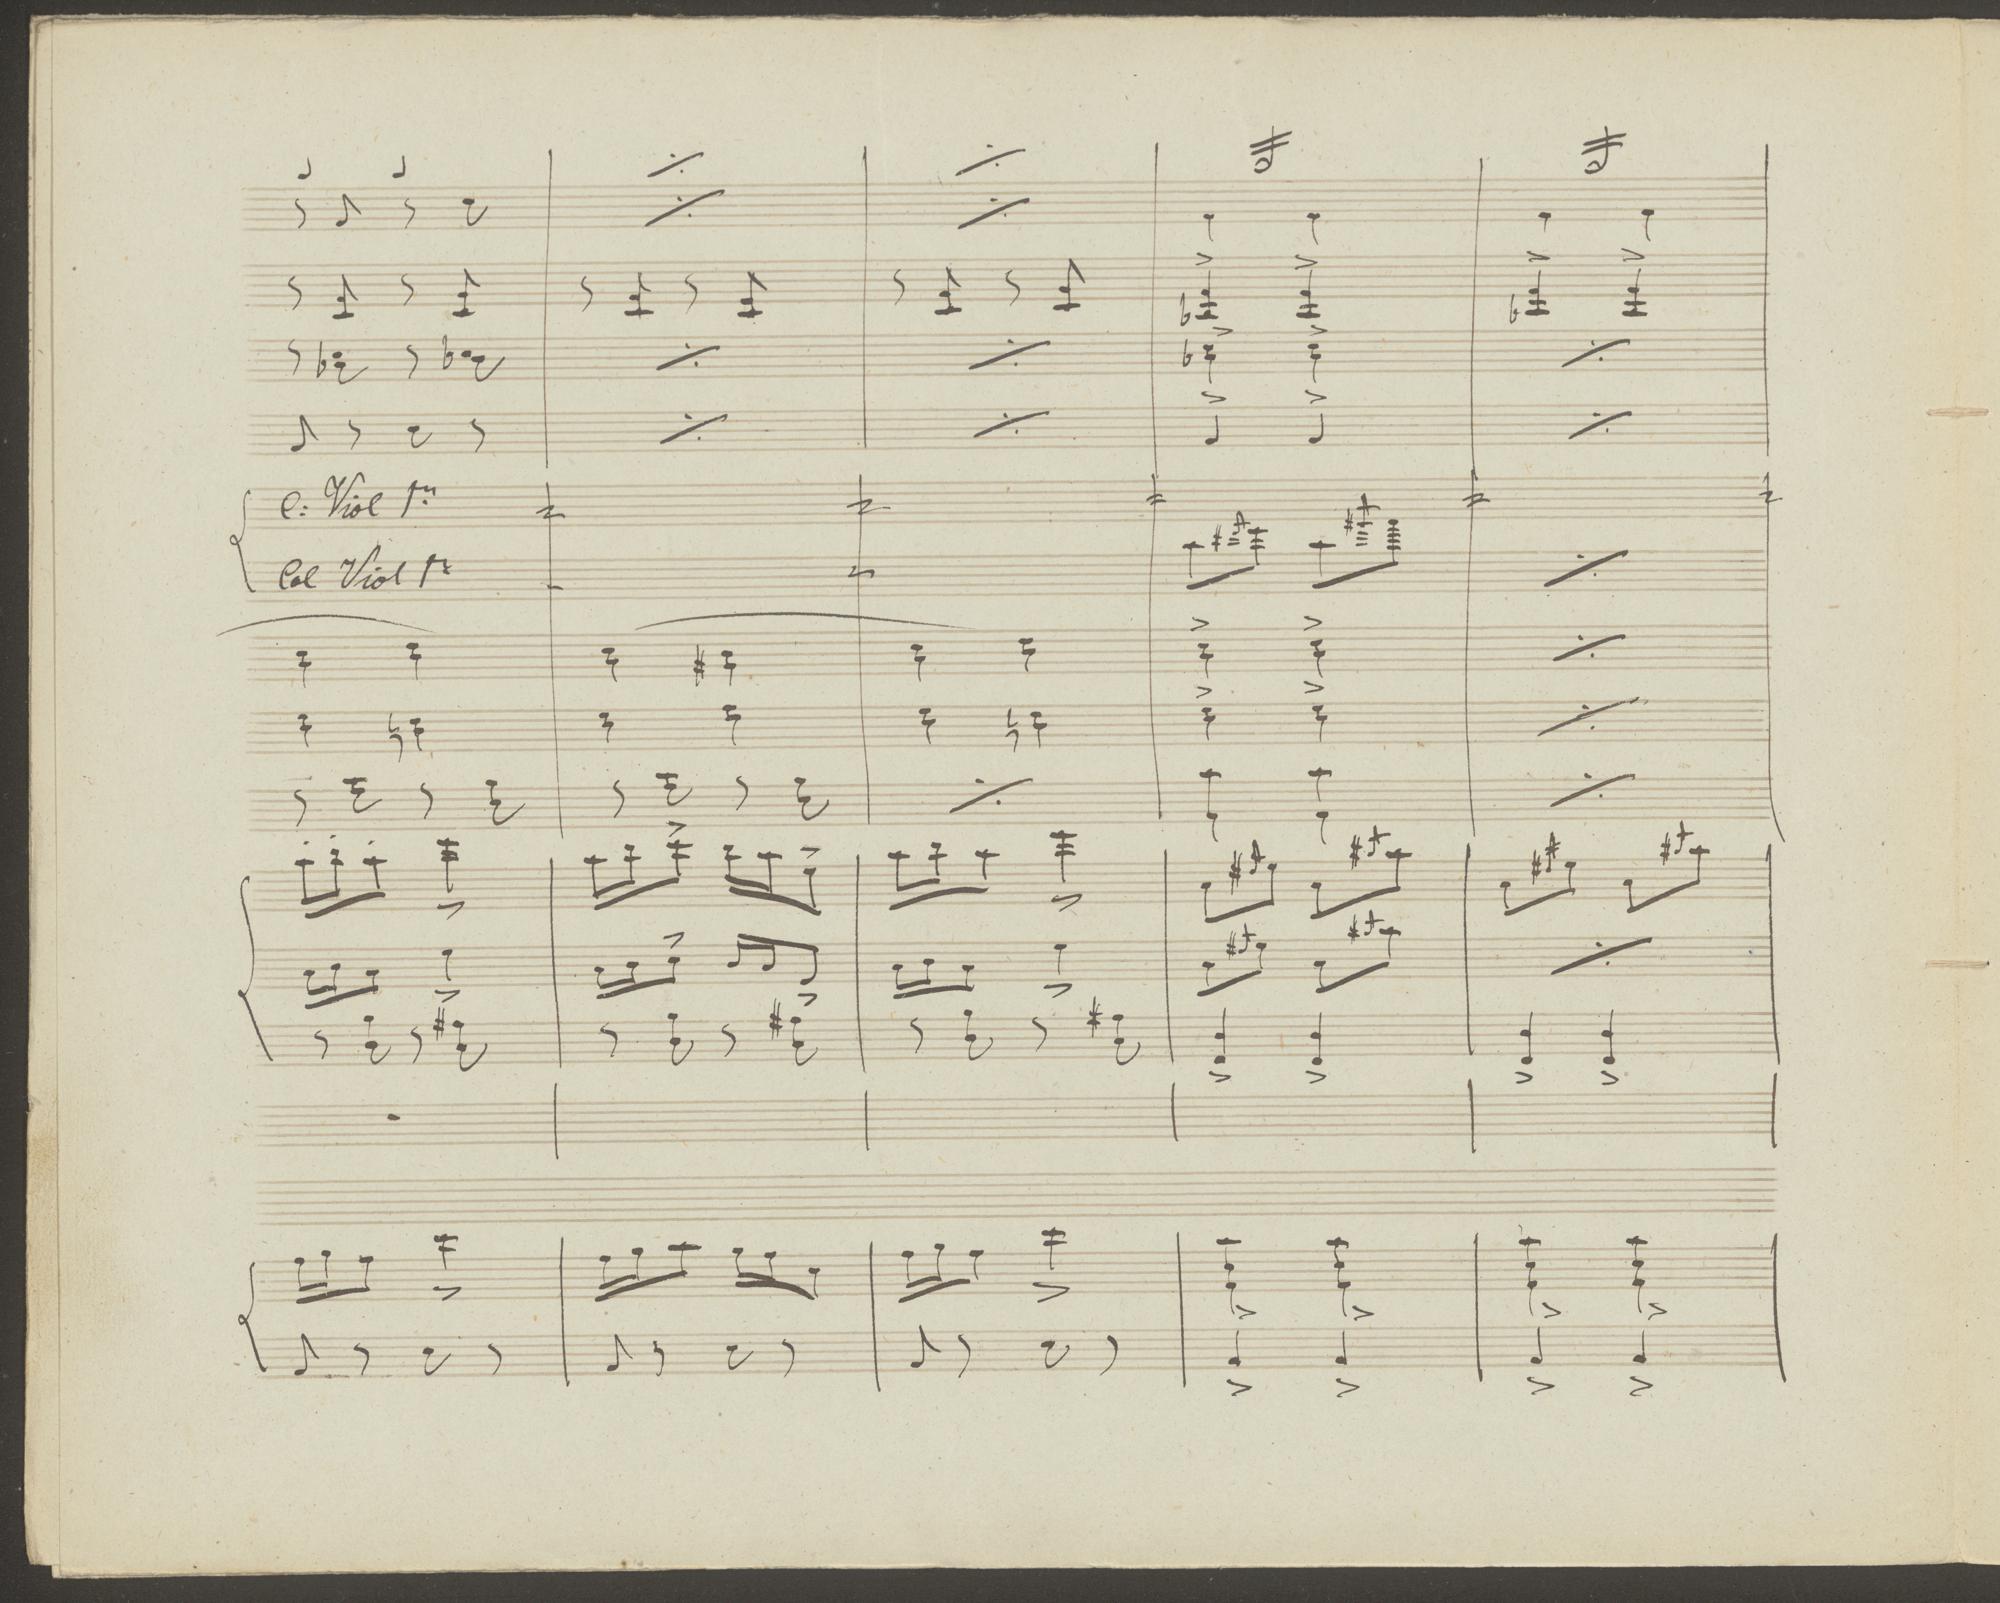 C: Viol 1mo
Col Viol 1mo